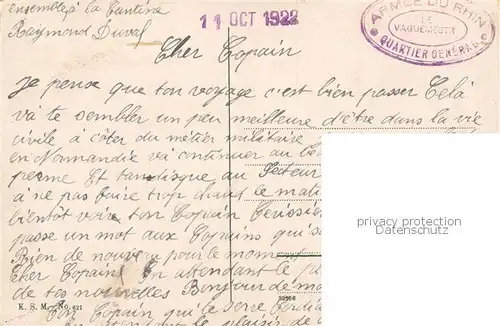 ensemble à la Cantine
Raymond Duval
11 OCT 1922
ARMÉE DU RHIN
LE
VAGUEMESTRE
QUARTIER GÉNÉRAL
Cher Copain
Je pense que ton voyage c'est bien passer Celà
va te sembler un peu meilleure d'être dans la vie
civile à côter du métier militaire
en Normandie va continuer au be
perme Et tandisque au Secteur
à ne pas faire trop chaud le mati
bientôt voir ton Copain
passe un mot aux Copains qui s
Rien de nouveau pour le mom
Cher Copain En attendant le p
de tes nouvelles Bonjour de ma
Ton Copain qui te serre
en attendant le plaisir de
privacy protection
watermark
K. S. M. No. 621